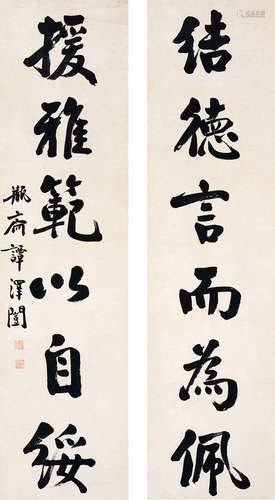 结德言而為佩
援雅範以自綏
瓶齋譚澤闓